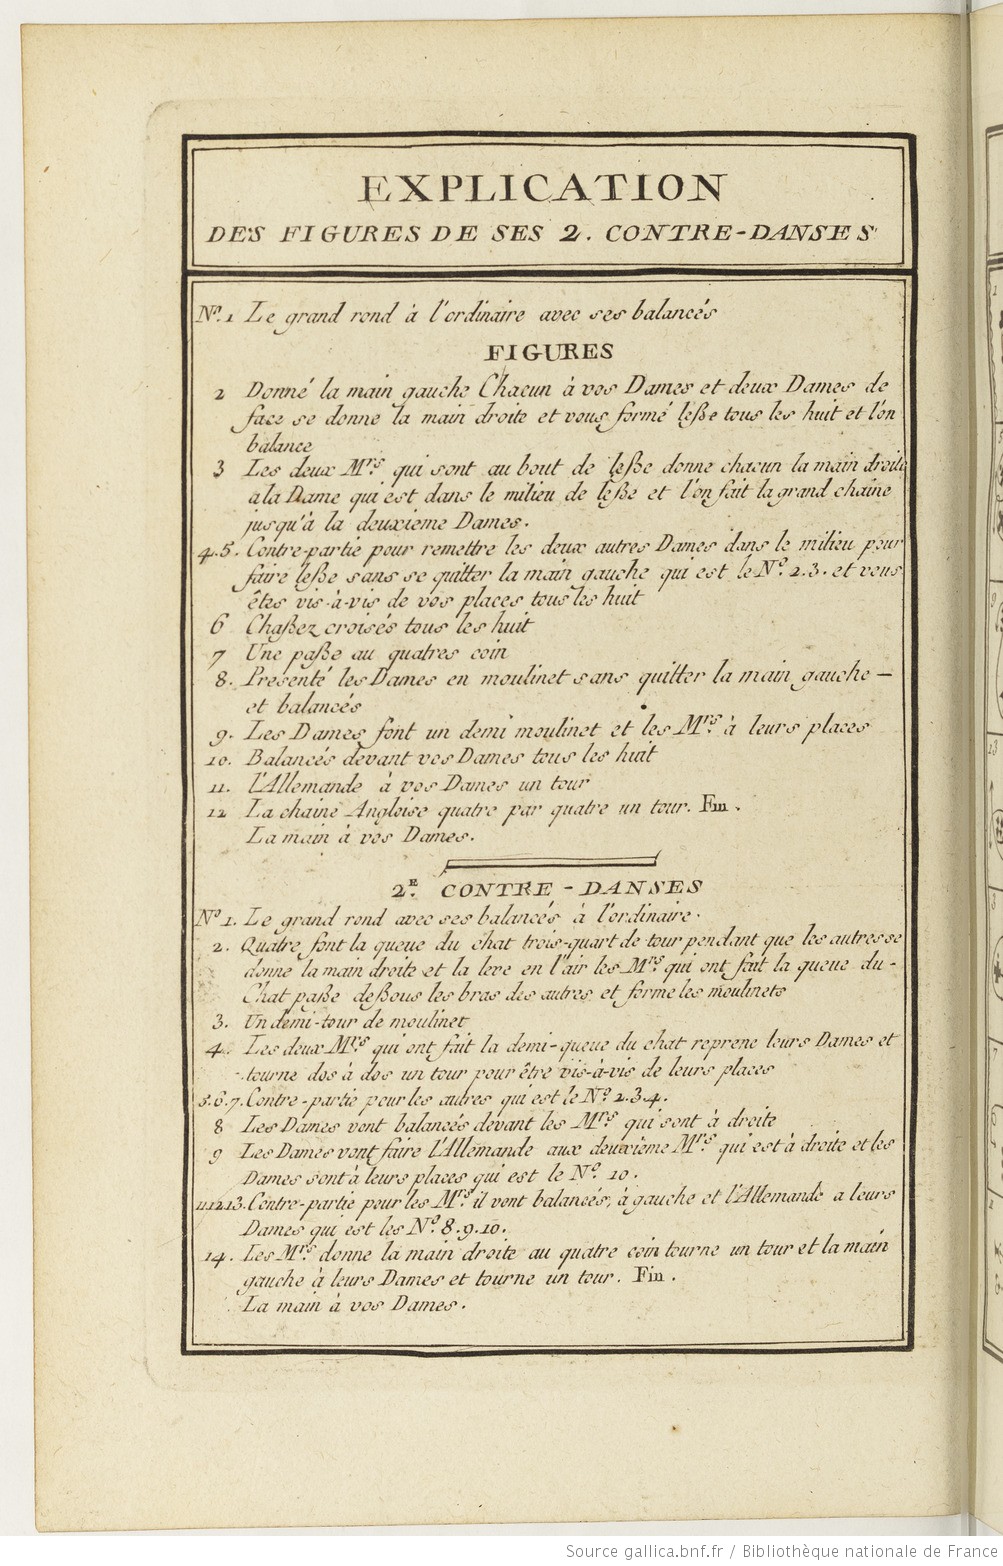 EXPLICATION
DES FIGURES DE SES 2. CONTRE-DANSES
Nº. 1 Le grand rond à l'ordinaire avec ses balancés
FIGURES
2 Donné la main gauche Chacun à vos Dames et deux Dames de
face se donne la main droite et vous formé leße tous les huit et l'on
balance
3 Les deux Mrs. qui sont au bout de leße donne chacun la main droite
a la Dame qui est dans le milieu de leße et l'on fait la grand chaine
jusqu'à la deuxième Dames.
4.5. Contre-partie pour remettre les deux autres Dames dans le milieu pour
faire leße sans se quitter la main gauche qui est le Nº. 2.3. et vous
êtes vis-à-vis de vos places tous les huit
6 Chaßez croisés tous les huit
7 Une paße au quatres coin
8. Présenté les Dames en moulinet sans quitter la main gauche —
et balancés
9. Les Dames font un demi moulinet et les Mrs. à leurs places
10. Balancés devant vos Dames tous les huit
11. l'Allemande à vos Dames un tour
12 La chaine Angloise quatre par quatre un tour. Fin.
La main à vos Dames.
2E. CONTRE-DANSES
Nº 1. Le grand rond avec ses balancés à l'ordinaire.
2. Quatre font la queue du chat trois-quart de tour pendant que les autres se
donne la main droite et la leve en l'air les Mrs. qui ont fait la queue du-
Chat paße deßous les bras des autres et forme les moulinets
3. Un demi-tour de moulinet
4. Les deux Mrs. qui ont fait la demi-queue du chat reprene leurs Dames et
tourne dos à dos un tour pour être vis-à-vis de leurs places
5.6.7. Contre-partie pour les autres qui est le Nº. 2.3.4.
8 Les Dames vont balancés devant les Mrs. qui sont à droite
9 Les Dames vont faire l'Allemande aux deuxième Mrs. qui est à droite et les
Dames sont à leurs places qui est le Nº. 10.
11.12.13. Contre-partie pour les Mrs. il vont balancés, à gauche et l'Allemande a leurs
Dames qui est les Nº. 8.9.10.
14. Les Mrs. donne la main droite au quatre coin tourne un tour et la main
gauche à leurs Dames et tourne un tour. Fin.
La main à vos Dames.
Source gallica.bnf.fr / Bibliothèque nationale de France